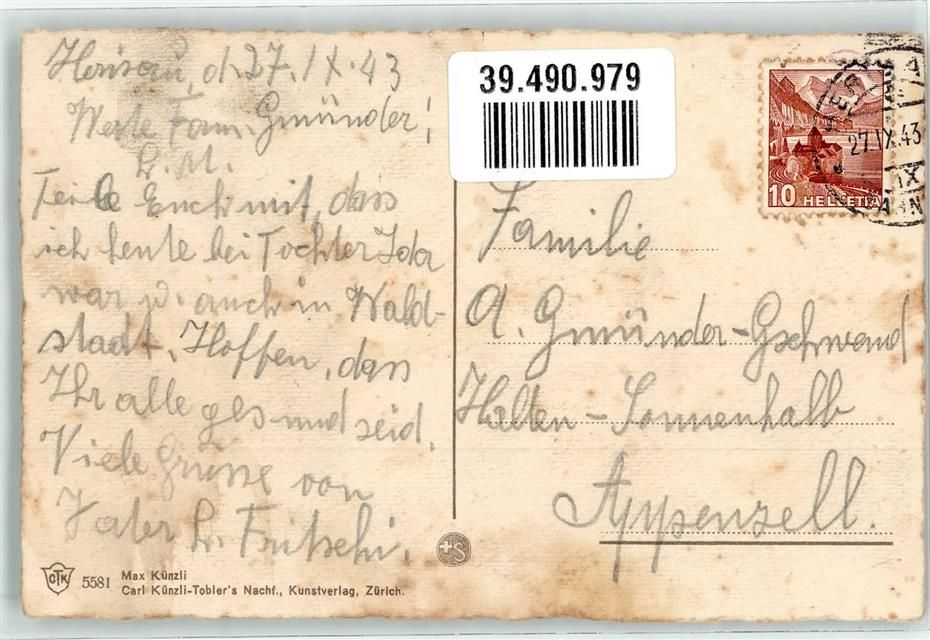 Herisau, d. 27. IX. 43
Werte Fam. Gmünder!
L. M.
Teile Euch mit, dass
ich heute bei Tochter Ida
war u. auch in Wald-
stadt. Hoffen, dass
Ihr alle gesund seid.
Viele Grüsse von
Vater L. Fritschi.
39.490.979
10 HELVETIA
27.IX.43
Familie
A. Gmünder-Gschwend
Halten-Sonnenhalb
Appenzell.
+S
CTK 5581 Max Künzli
Carl Künzli-Tobler's Nachf., Kunstverlag, Zürich.